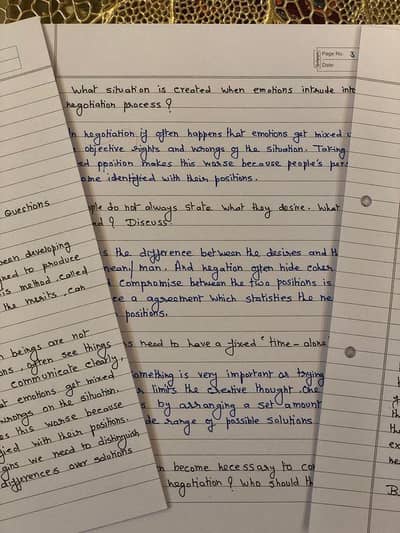 Page No. 3
Date:
What situation is created when emotions intrude into
negotiation process?
In negotiation if often happens that emotions get mixed
objective rights and wrongs of the situation. Taking
position makes this worse because people's
identified with their positions.
do not always state what they desire. What
? Discuss.
is the difference between the desires and
mean/man. And negation often hide
compromise between the two positions is
a agreement which statisties the
positions.
need to have a fixed "time-alone
something is very important as trying
limits the creative thought. One
by arranging a set amount
range of possible solutions
become necessary to
negotiation? Who should
Questions
been developing
to produce
is method called
the merits. Can
beings are not
often see things
communicate clearly,
emotions get mixed
wrongs on the situation.
this worse because
with their positions.
we need to distinguish
differences over solutions
B